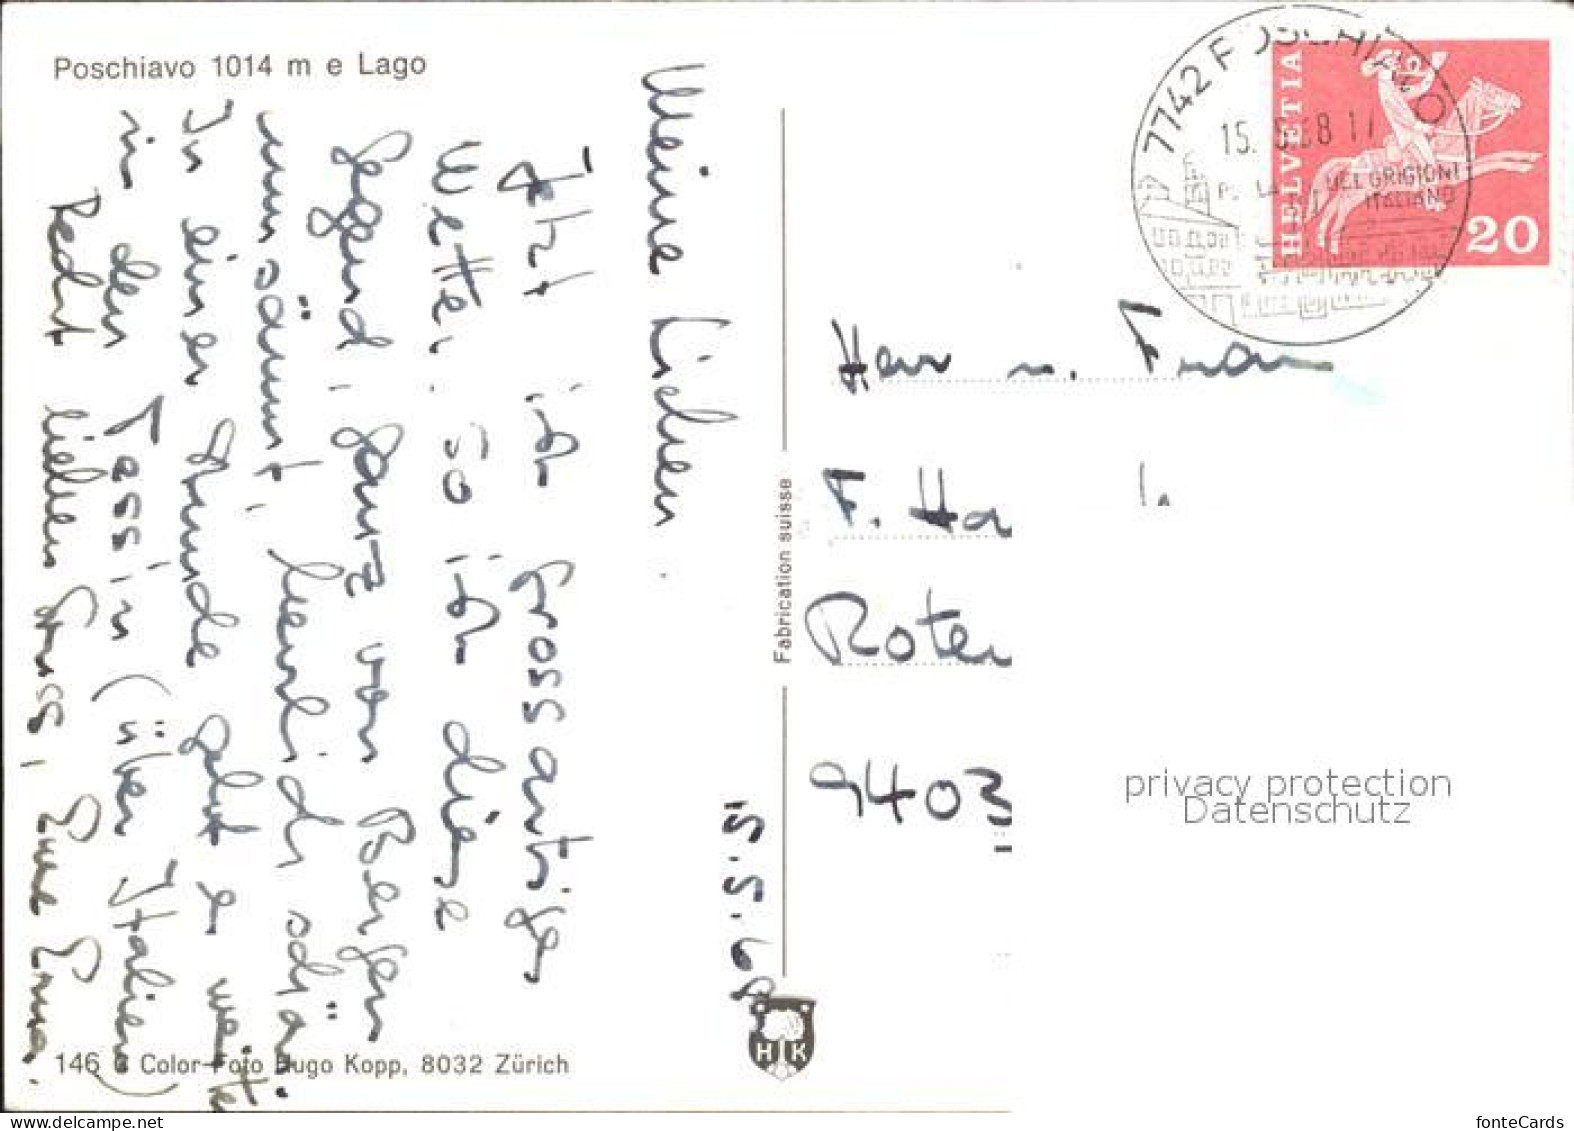 Poschiavo 1014 m e Lago
15.5.68
Meine Lieben.
Jetzt ich grossartiges
Wetter. So ich diese
Gegend, ganz von Bergen
umsäumt, herrlich schön.
In einer Stunde geht es weiter
in den Tessin (über Italien)
Recht lieben Gruss, Eure Erna.
146 Color-Foto Hugo Kopp, 8032 Zürich
Fabrication suisse
HK
7742 POSCHIAVO
15. 5.68 17
DEL GRIGIONI
ITALIANO
HELVETIA
20
Herr u. Frau
F. Ha
Roten
9403
privacy protection
Datenschutz
fonteCards